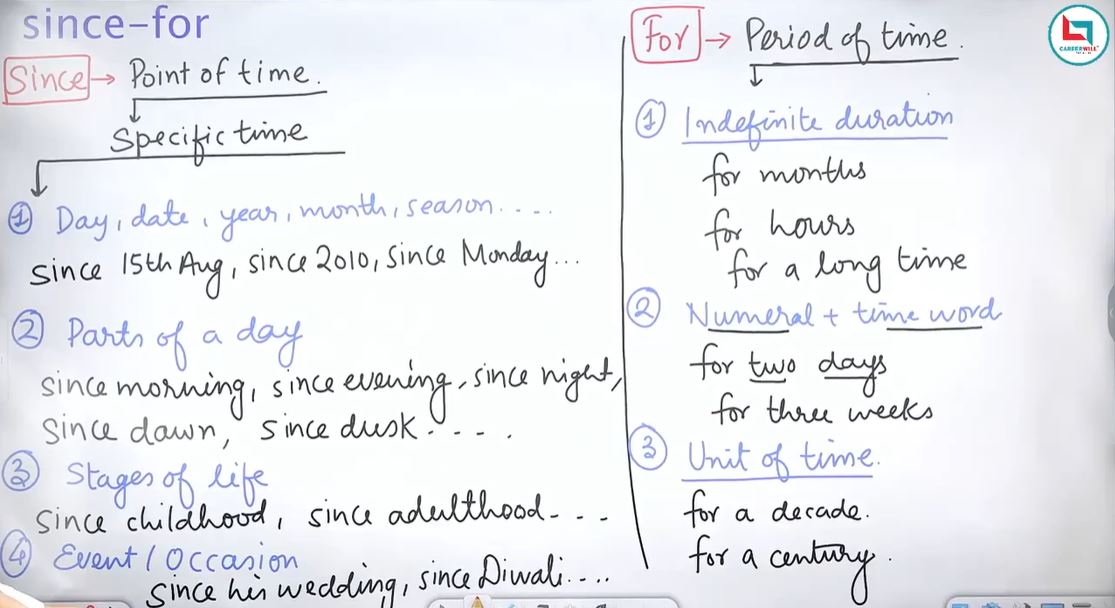 since-for
Since → Point of time.
Specific time
① Day, date, year, month, season....
since 15th Aug, since 2010, since Monday...
② Parts of a day
since morning, since evening, since night,
since dawn, since dusk....
③ Stages of life
since childhood, since adulthood---
④ Event / Occasion
since her wedding, since Diwali....
For → Period of time.
① Indefinite duration
for months
for hours
for a long time
② Numeral + time word
for two days
for three weeks
③ Unit of time.
for a decade.
for a century.
CAREERWILL